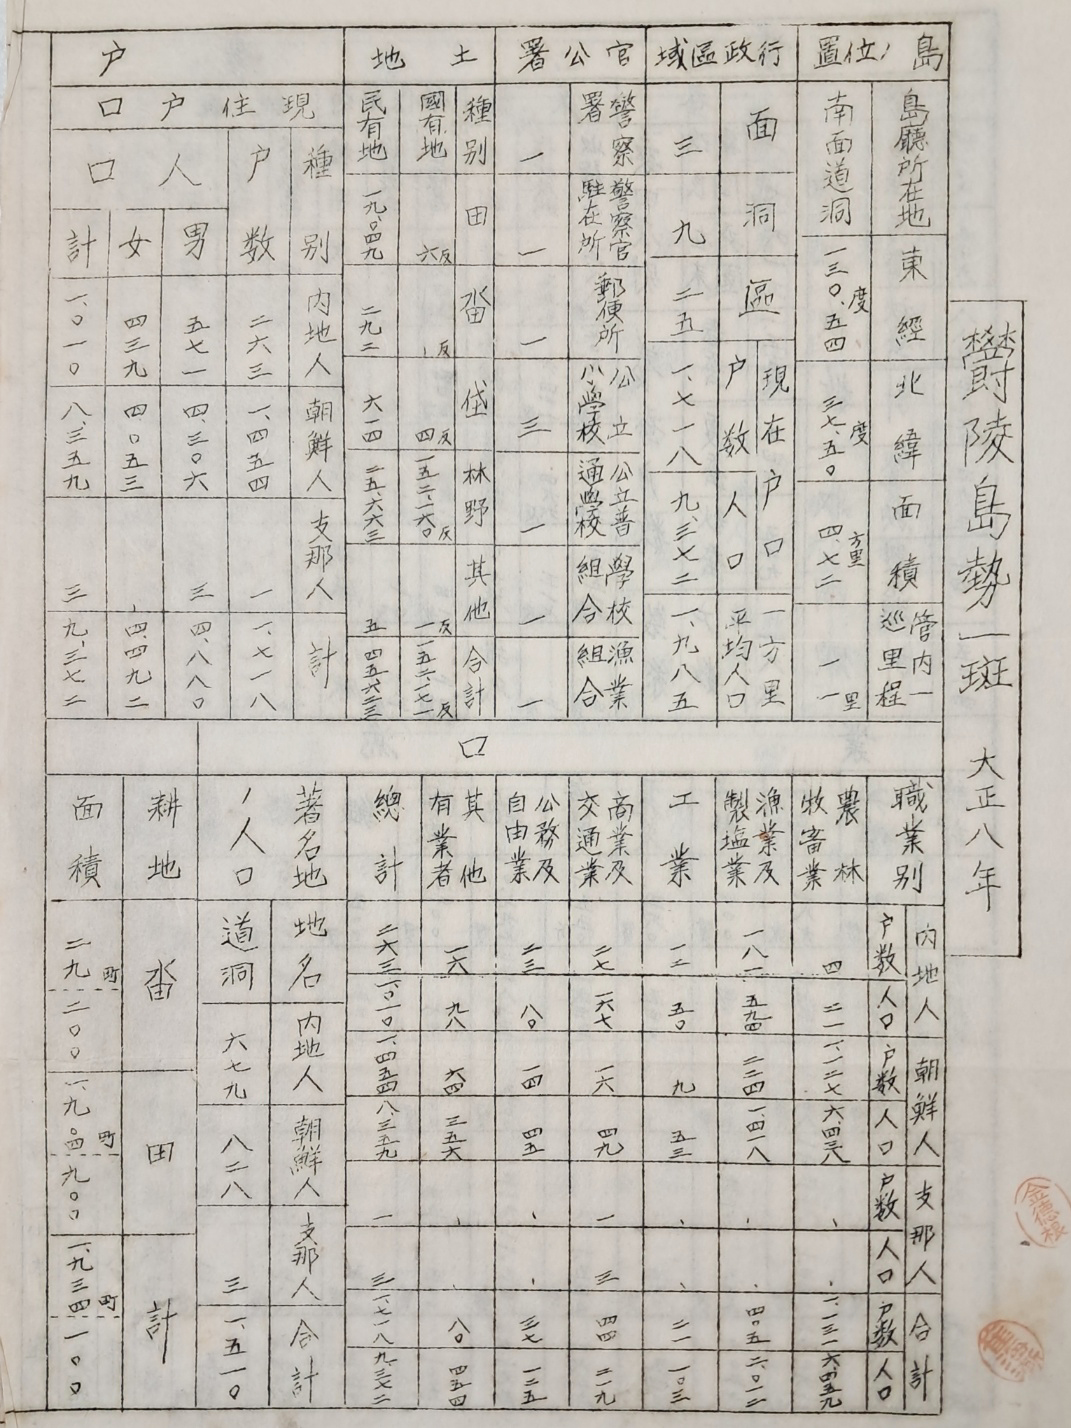 欝陵島勢一斑 大正八年
島ノ位置
島廳所在地 東經 北緯 面積 管内一巡里程
南面道洞 一三〇、五四度 三七、五〇度 四、七二方里 一一里
行政區域
面 洞 區 現在戸口 戸数 人口 一方里平均人口
三 九 二五 一、七一八 九、三七二 一、九八五
官公署
警察署 警察官駐在所 郵便所 公立小學校 公立普通學校 學校組合 漁業組合
一 一 一 三 一 一 一
土地
種別 田 畓 垈 林野 其他 合計
國有地 六反 、反 四反 一五二、一六〇反 一反 一五二、一七一反
民有地 一九、〇四九 二九二 六一四 二五、六六三 五 四五、六二三
戸
現住戸口
種別 内地人 朝鮮人 支那人 計
戸数 二六三 一、四五四 一 一、七一八
人口
男 五七一 四、三〇六 三 四、八八〇
女 四三九 四、〇五三 、 四、四九二
計 一、〇一〇 八、三五九 三 九、三七二
口
職業別 内地人 戸数 人口 朝鮮人 戸数 人口 支那人 戸数 人口 合計 戸数 人口
農林牧畜業 四 二一 一、一二七 六、四三八 、 、 一、一三一 六、四五九
漁業及製塩業 一八一 五九四 二二四 一、四一八 、 、 四〇五 二、〇一二
工業 一二 五〇 九 五三 、 、 二一 一〇三
商業及交通業 二七 一六七 一六 四九 一 三 四四 二一九
公務及自由業 二三 八〇 一四 四五 、 、 三七 一二五
其他有業者 一六 九八 六四 三五六 、 、 八〇 四五四
總計 二六三 一、〇一〇 一、四五四 八、三五九 一 三 一、七一八 九、三七二
著名地ノ人口
地名 内地人 朝鮮人 支那人 合計
道洞 六七九 八二八 三 一、五一〇
耕地 畓 田 計
面積 二九町二〇〇 一、九〇四町九〇〇 一、九三四町一〇〇